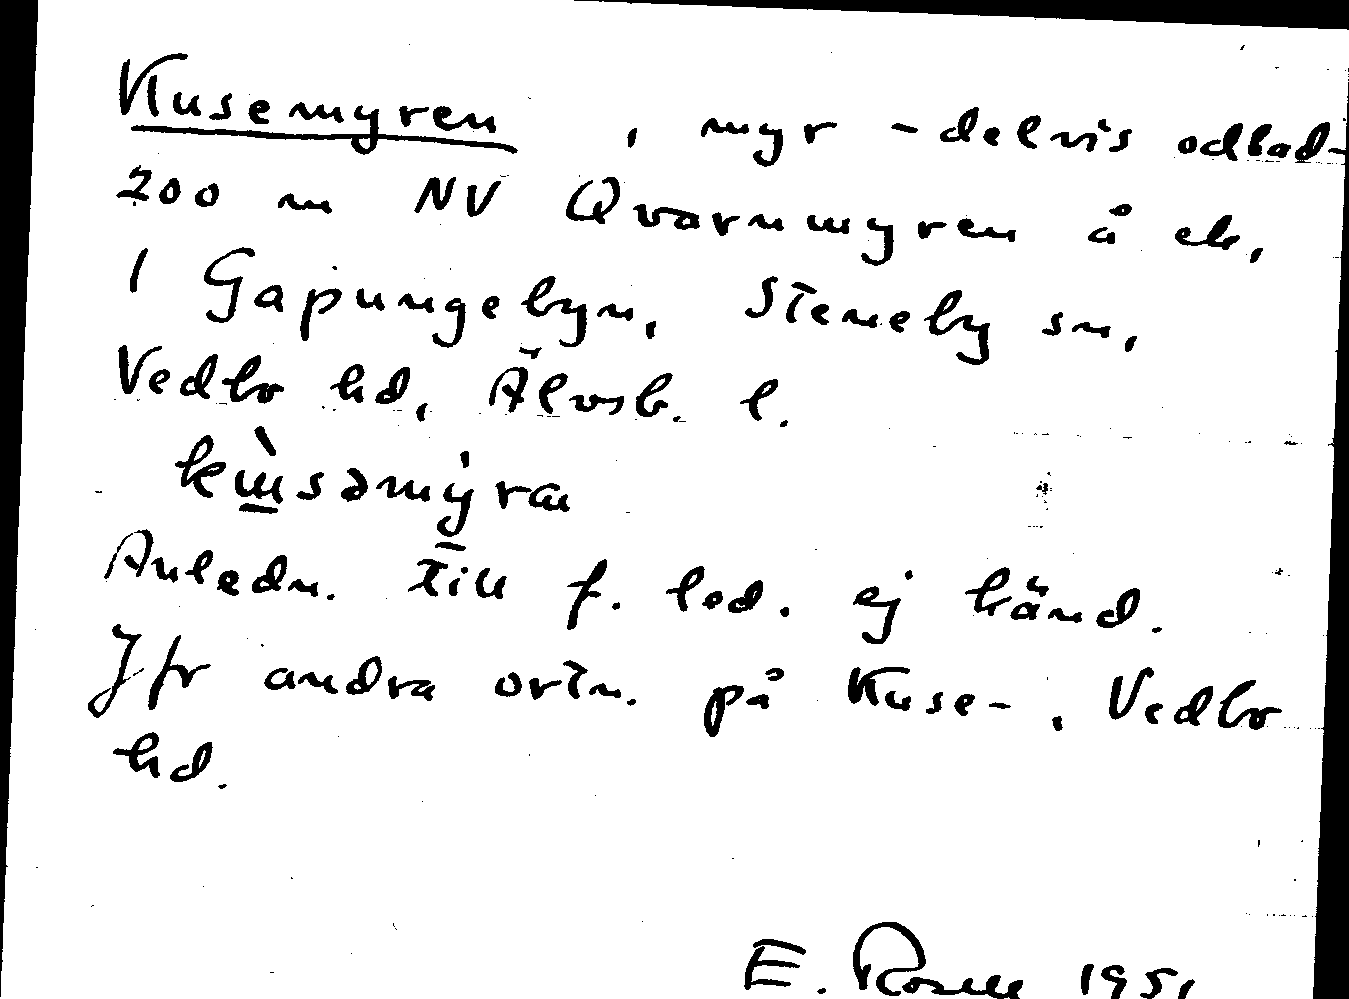 Kusemyren , myr - delvis odlad-
200 m NV Qvarnmyren å ek,
1 Gapungebyn, Steneby sn,
Vedbo hd, Älvsb. l.
Anledn. till f. led. ej känd.
Jfr andra ortn. på Kuse-, Vedbo
hd.
E. Rosell 1951